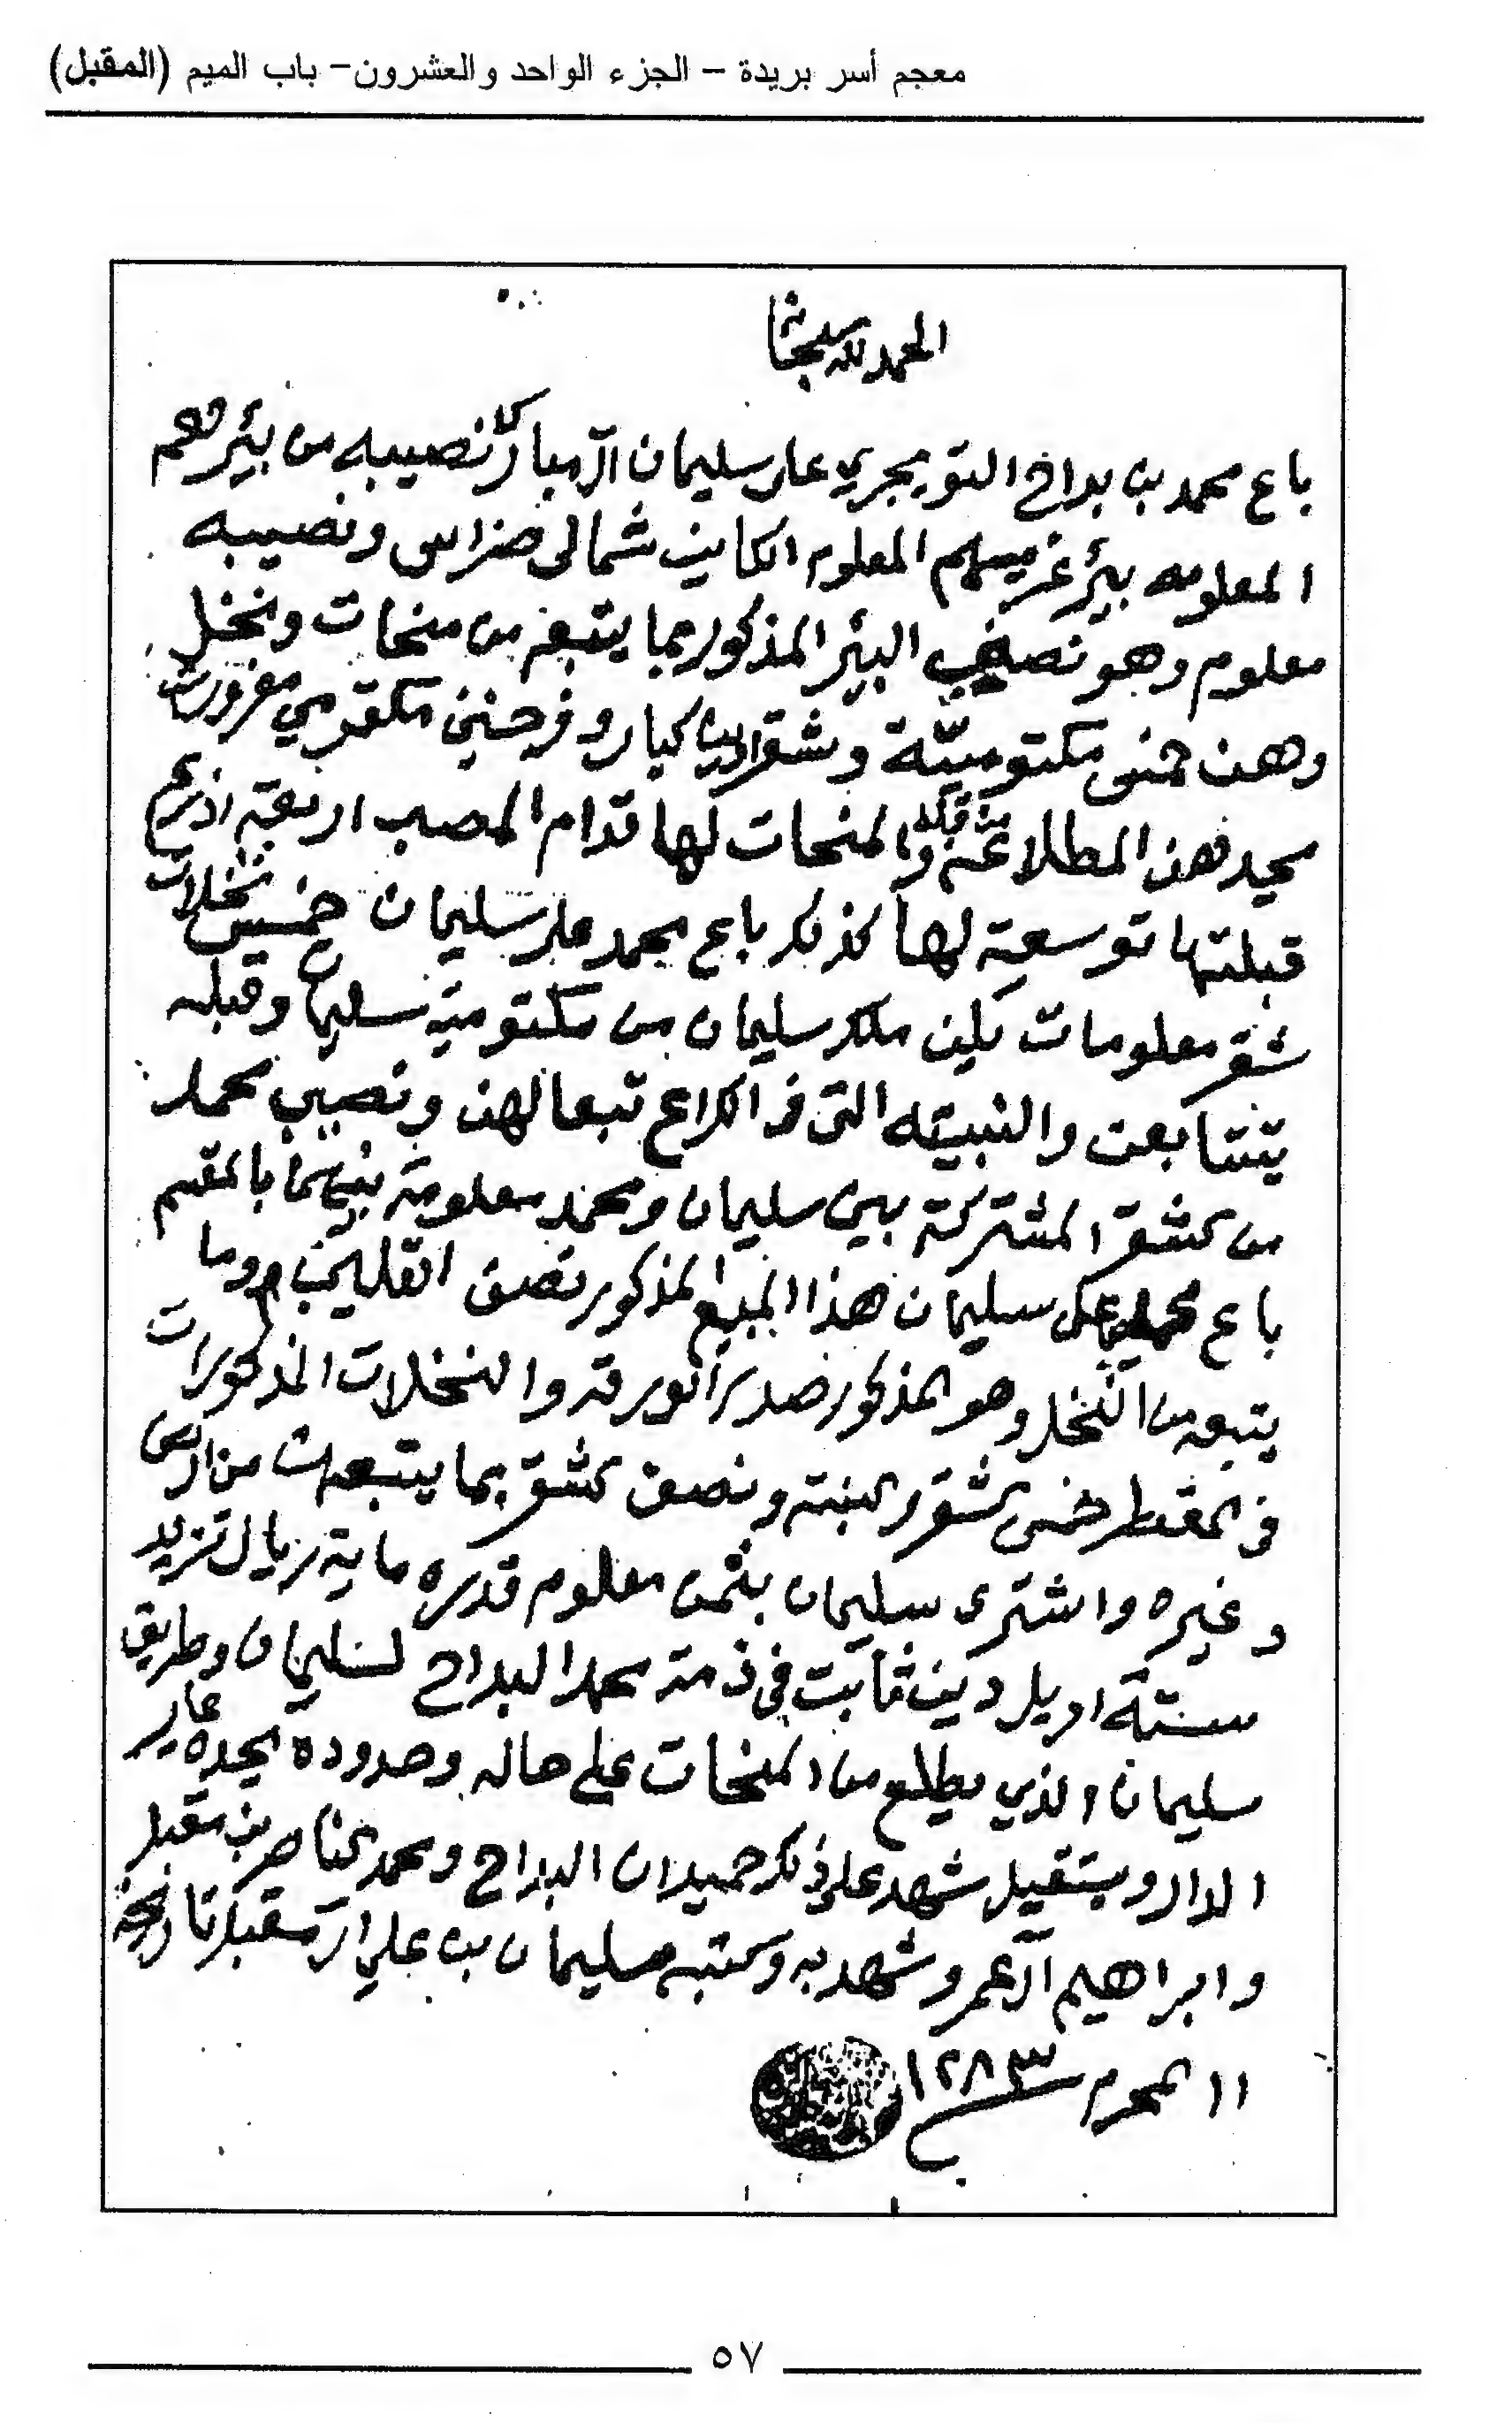 معجم أسر بريدة – الجزء الواحد والعشرون– باب الميم (المقبل)
الحمد لله سبحانه
باع محمد بن بداح التويجري على سليمان آل مبارك نصيبه من بير
المعلومه بير غريسهم المعلوم الكاين شمالى ضراس ونصيبه
معلوم وهو نصف البير المذكور بما يتبعه من منحات ونخل
وهن خمس مكتوميّة وشقراوين كبار وفرختين مكتومي مغروزت
يحيد هذا المطلاع والمنحات لها قدام المصب اربعة اذرع
قبلتها توسعة لها كذلك باع محمد على سليمان خمس نخلات
شقر معلومات يلين ملك سليمان من مكتومية سليمان وقبله
يتتابعن والنبيته التى في الكراع تبعا لهن ونصيب محمد
من الشقر المشتركة بين سليمان ومحمد معلومة بينهما بالقسم
باع محمد على سليمان هذا المبيع المذكور نصف القليب وما
يتبعه من النخل وهو المذكور صدر الورقه والنخلات المذكورات
في المقطر خمس الشقر والنبته ونصف الشقر بما يتبعه من ارض
وغيره واشترى سليمان بثمن معلوم قدره ماية ريال تزيد
ستة اريل دين ثابت في ذمة محمد البداح لسليمان وطريق
سليمان الذي يطلع من المنحات على حاله وحدوده يحده جدار
الدار ويستقيل شهد على ذلك حميدان البداح ومحمد الناصر بن مقبل
وابراهيم آل عمرو شهد به وكتبه سليمان بن علي آل مقبل تاريخه
١١ المحرم ١٢٨٣
٥٧